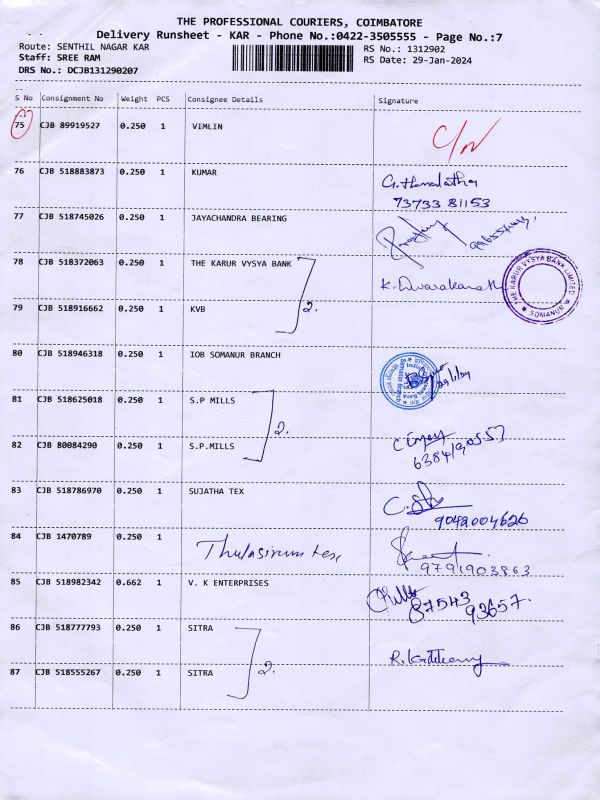 THE PROFESSIONAL COURIERS, COIMBATORE
Delivery Runsheet - KAR - Phone No.:0422-3505555 - Page No.:7
Route: SENTHIL NAGAR KAR RS No.: 1312902
Staff: SREE RAM RS Date: 29-Jan-2024
DRS No.: DCJB131290207
S No Consignment No Weight PCS Consignee Details Signature
75 CJB 89919527 0.250 1 VIMLIN C/N
76 CJB 518883873 0.250 1 KUMAR G. Hemalatha
73733 81153
77 CJB 518745026 0.250 1 JAYACHANDRA BEARING
78 CJB 518372063 0.250 1 THE KARUR VYSYA BANK K. Dwarakanath
THE KARUR VYSYA BANK LIMITED
SOMANUR
79 CJB 518916662 0.250 1 KVB 2.
80 CJB 518946318 0.250 1 IOB SOMANUR BRANCH
81 CJB 518625018 0.250 1 S.P MILLS 2.
82 CJB 80084290 0.250 1 S.P.MILLS
83 CJB 518786970 0.250 1 SUJATHA TEX
9042004626
84 CJB 1470789 0.250 1 Thulasirum tex
9791903863
85 CJB 518982342 0.662 1 V. K ENTERPRISES 87543 93657.
86 CJB 518777793 0.250 1 SITRA
87 CJB 518555267 0.250 1 SITRA 2.